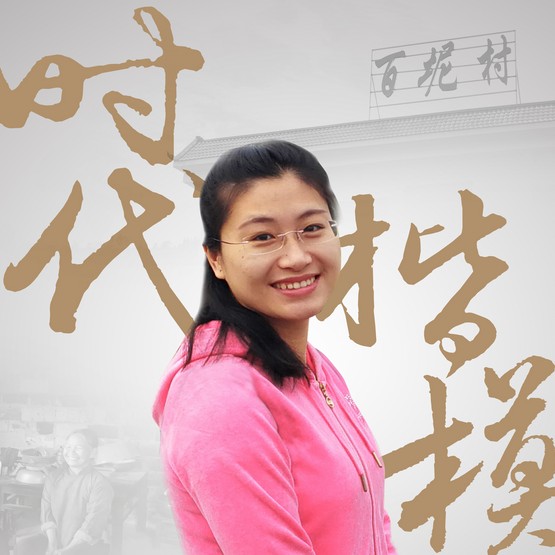 时代楷模
百坭村